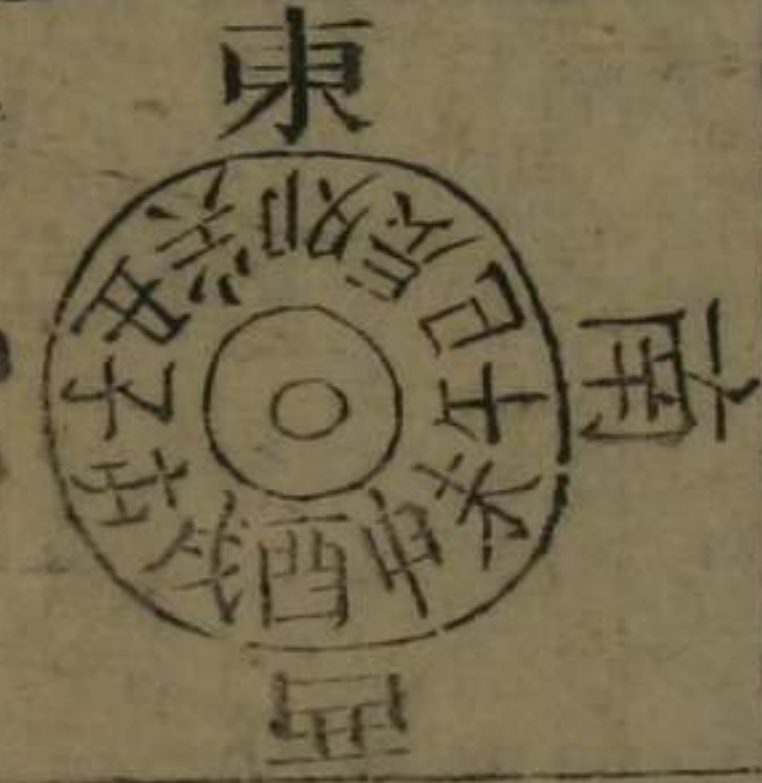 東
南
西
子
丑
寅
卯
辰
巳
午
未
申
酉
戌
亥